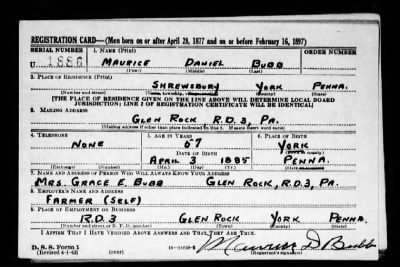 REGISTRATION CARD—(Men born on or after April 28, 1877 and on or before February 16, 1897)
SERIAL NUMBER 1. NAME (Print)
U 1886 MAURICE DANIEL BUBB
(First) (Middle) (Last)
2. PLACE OF RESIDENCE (Print)
SHREWSBURY YORK PENNA.
[THE PLACE OF RESIDENCE GIVEN ON THE LINE ABOVE WILL DETERMINE LOCAL BOARD
JURISDICTION; LINE 2 OF REGISTRATION CERTIFICATE WILL BE IDENTICAL]
3. MAILING ADDRESS
GLEN ROCK, R.D.3, PA.
[Mailing address if other than place indicated on line 2. If same insert word same]
4. TELEPHONE 5. AGE IN YEARS 6. PLACE OF BIRTH
NONE 57 YORK
DATE OF BIRTH
APRIL 3 1885 PENNA.
(Exchange) (Number) (Mo.) (Day) (Yr.) (State or country)
7. NAME AND ADDRESS OF PERSON WHO WILL ALWAYS KNOW YOUR ADDRESS
MRS. GRACE E. BUBB GLEN ROCK, R.D.3, PA.
8. EMPLOYER'S NAME AND ADDRESS
FARMER (SELF)
9. PLACE OF EMPLOYMENT OR BUSINESS
R.D.3 GLEN ROCK YORK PENNA.
(Number and street or R. F. D. number) (Town) (County) (State)
I AFFIRM THAT I HAVE VERIFIED ABOVE ANSWERS AND THAT THEY ARE TRUE.
D. S. S. Form 1
(Revised 4-1-42) (over) Maurice D Bubb
(Registrant's signature)